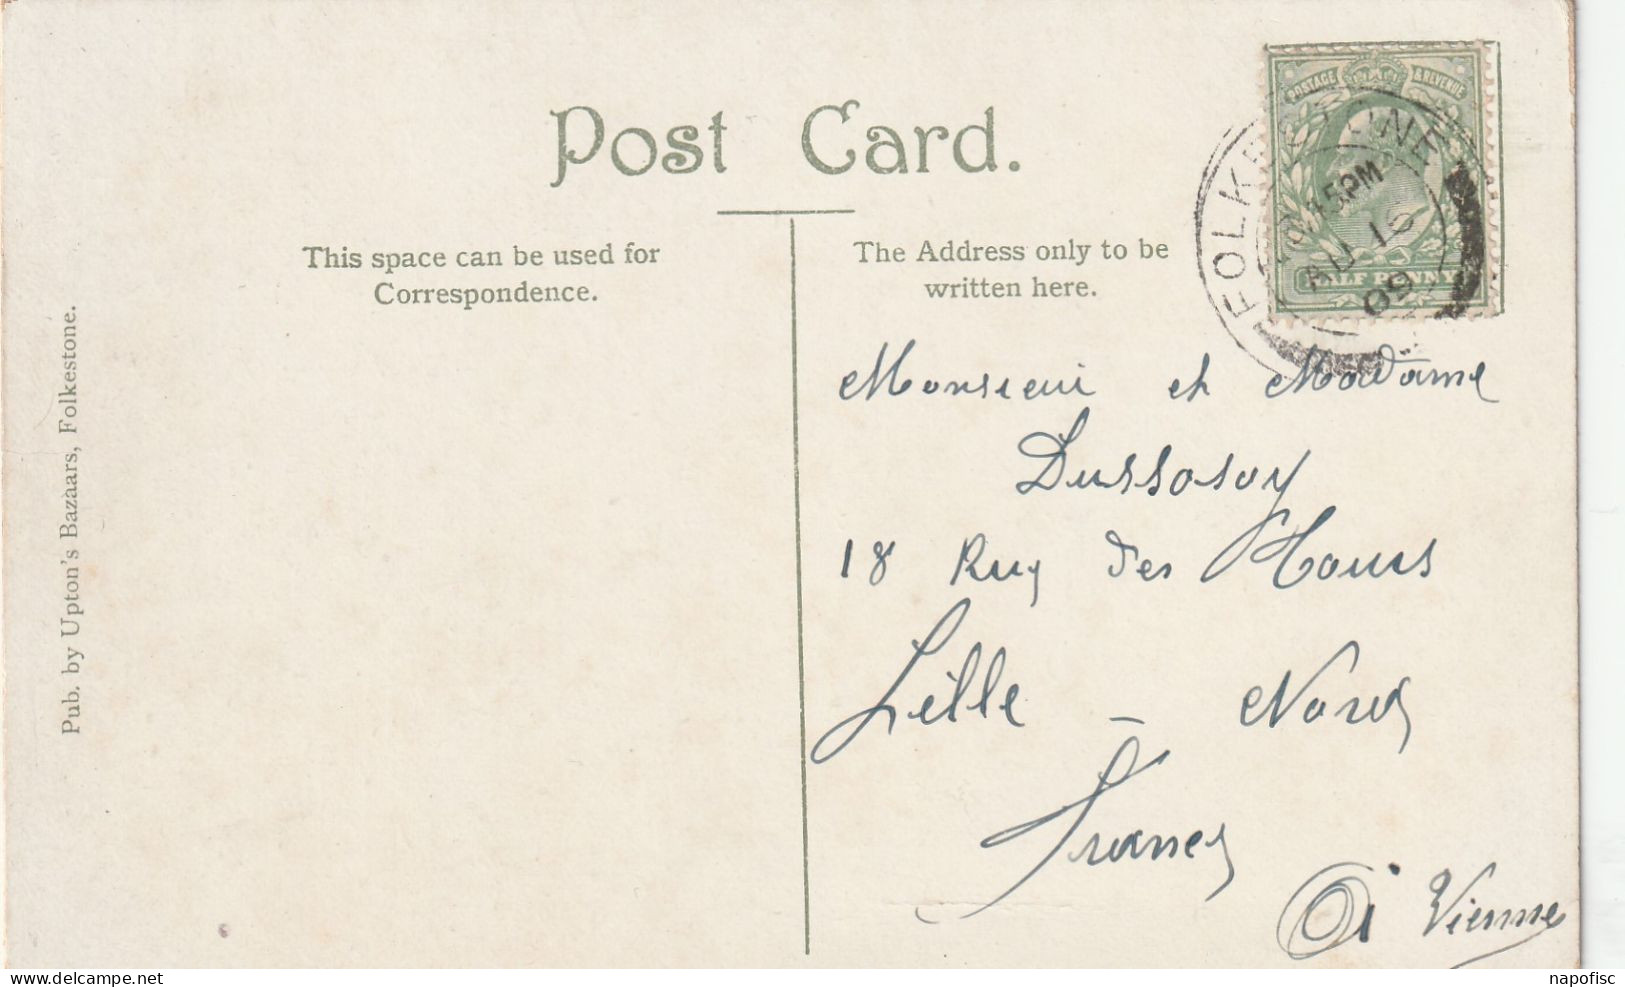 Post Card.
This space can be used for
Correspondence.
The Address only to be
written here.
Pub. by Upton's Bazaars, Folkestone.
POSTAGE & REVENUE
HALF PENNY
FOLKESTONE
15PM
AU 10
09
Monsieur et Madame
Dussosoy
18 Rue des
Lille – Nord
France
Vienne
www.delcampe.net
napofisc